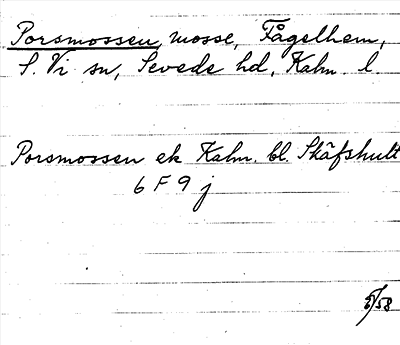 Porsmossen, mosse, Fågelhem,
S. Vi sn, Sevede hd, Kalm. l.
Porsmossen ek Kalm. bl. Skäfshult
6 F 9 j